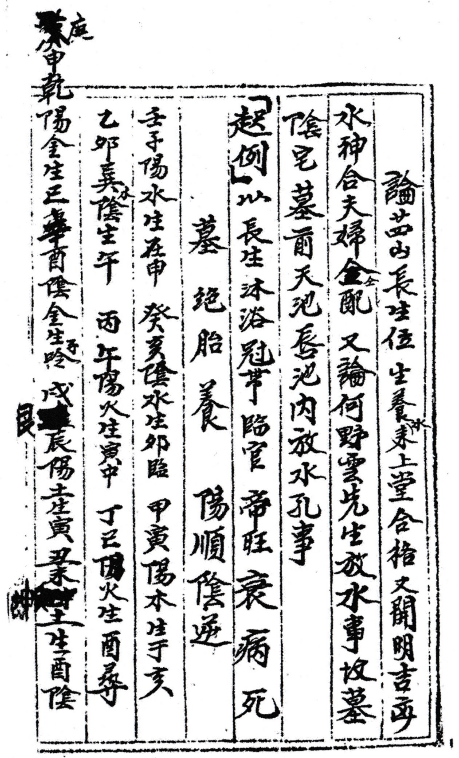 論茁山長生位生養來水上堂合格又開明吉凶
水神合夫婦仝配又論何野雲先生放水事故墓
陰宅墓前天池唇池內放水孔事
起例以長生沐浴冠帶臨官帝旺衰病死
墓絕胎養 陽順陰逆
壬子陽水生在申 癸亥陰水生卯臨 甲寅陽木生于亥
乙卯巽陰木生午 丙午陽火生寅中 丁巳陰火生酉尋
庚申乾陽金生巳 酉陰金生子 戊辰陽土生寅 丑未土生酉陰